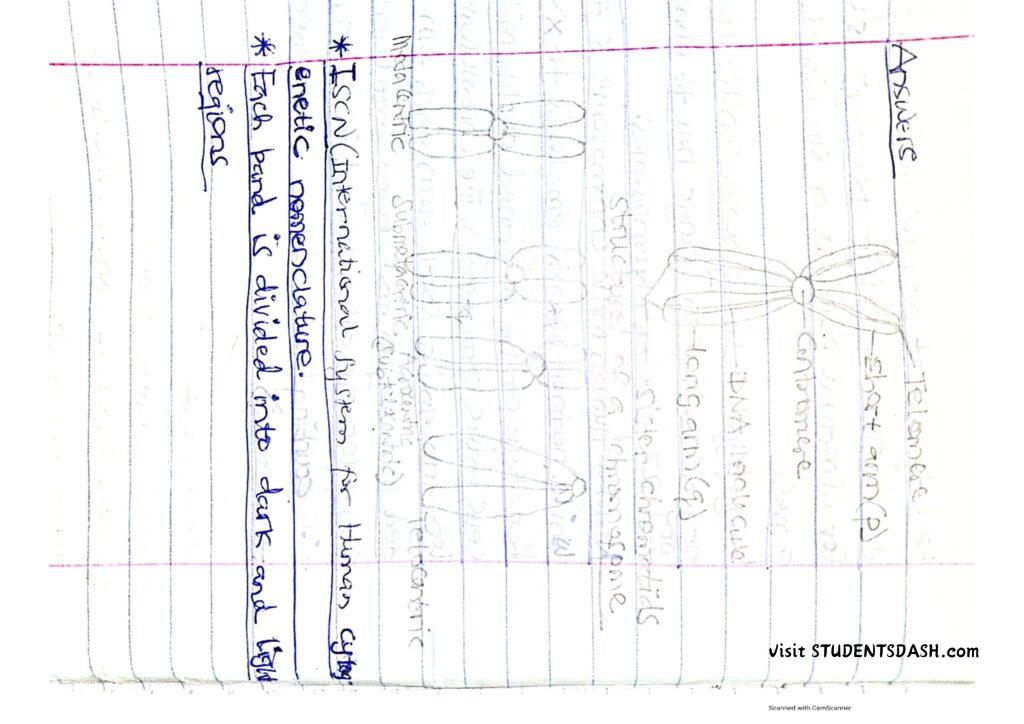 Answers
Telomere
Short arm(p)
Centromere
DNA
long arm(q)
sister chromatids
Structure of a chromosome
Submetacentric Acrocentric Telocentric
* ISCN(International System for Human Cytog
enetic nomenclature.
* Each band is divided into dark and light
regions
Visit STUDENTSDASH.com
Scanned with CamScanner